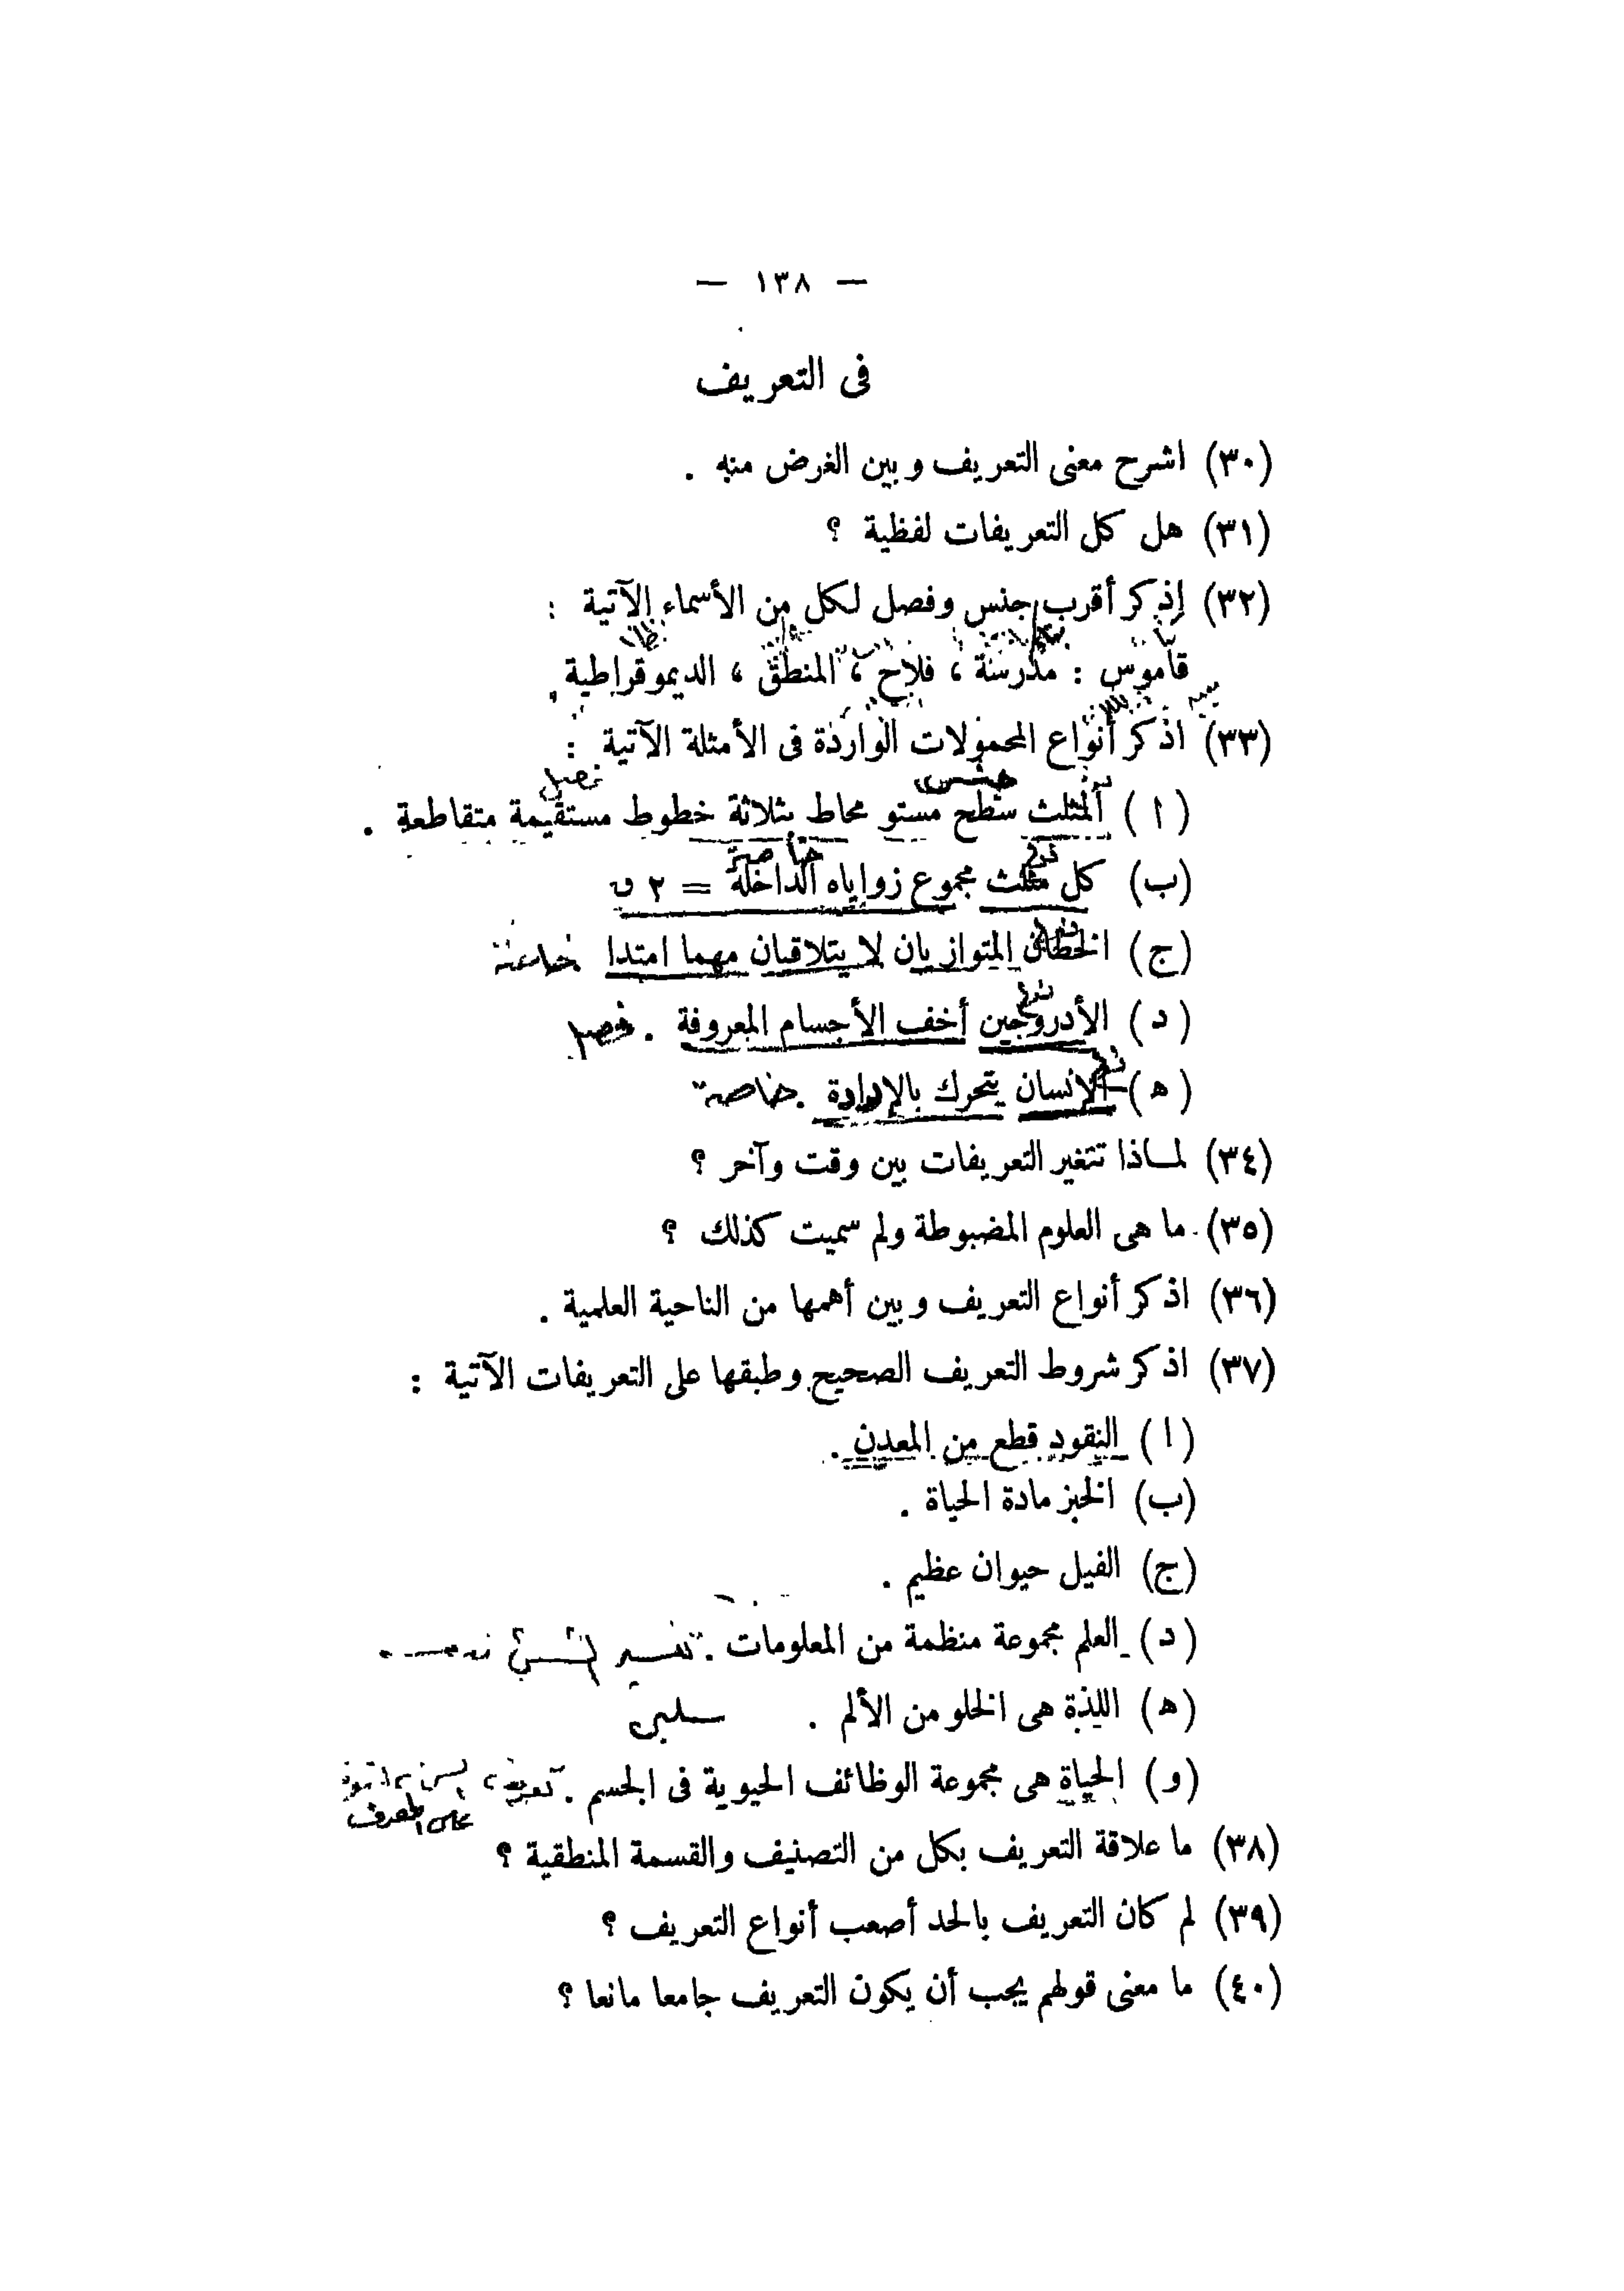 — ١٣٨ —
فى التعريف
(٣٠) اشرح معنى التعريف وبين الغرض منه .
(٣١) هل كل التعريفات لفظية ؟
(٣٢) إذكر أقرب جنس وفصل لكل من الأسماء الآتية :
قاموس : مدرسة ، فلاح ، المنطق ، الديموقراطية .
(٣٣) اذكر أنواع المحمولات الواردة فى الأمثلة الآتية :
جنس فصل
(ا) المثلث سطح مستو محاط بثلاثة خطوط مستقيمة متقاطعة .
نوع خاصة
(ب) كل مثلث مجموع زواياه الداخلة = ٢ ق
نوع
(ج) الخطان المتوازيان لا يتلاقيان مهما امتدا خاصة
نوع
(د) الأدروجين أخف الأجسام المعروفة . فصل
نوع
(ه) الإنسان يتحرك بالإرادة . خاصة
(٣٤) لماذا تتغير التعريفات بين وقت وآخر ؟
(٣٥) ما هى العلوم المضبوطة ولم سميت كذلك ؟
(٣٦) اذكر أنواع التعريف وبين أهمها من الناحية العلمية .
(٣٧) اذكر شروط التعريف الصحيح وطبقها على التعريفات الآتية :
(ا) النقود قطع من المعدن .
(ب) الخبز مادة الحياة .
(ج) الفيل حيوان عظيم .
(د) العلم مجموعة منظمة من المعلومات . تفسير الشئ
(ه) اللذة هى الخلو من الألم . سلبى
(و) الحياة هى مجموعة الوظائف الحيوية فى الجسم . تعريف
على المعرف
(٣٨) ما علاقة التعريف بكل من التصنيف والقسمة المنطقية ؟
(٣٩) لم كان التعريف بالحد أصعب أنواع التعريف ؟
(٤٠) ما معنى قولهم يجب أن يكون التعريف جامعا مانعا ؟